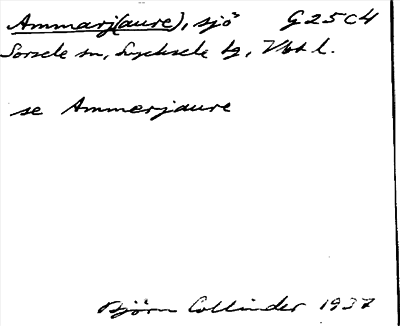 Ammarj(aure), sjö G25C4
Sorsele sn, Lycksele tg, Vbt l.
se Ammerjaure
Björn Collinder 1937